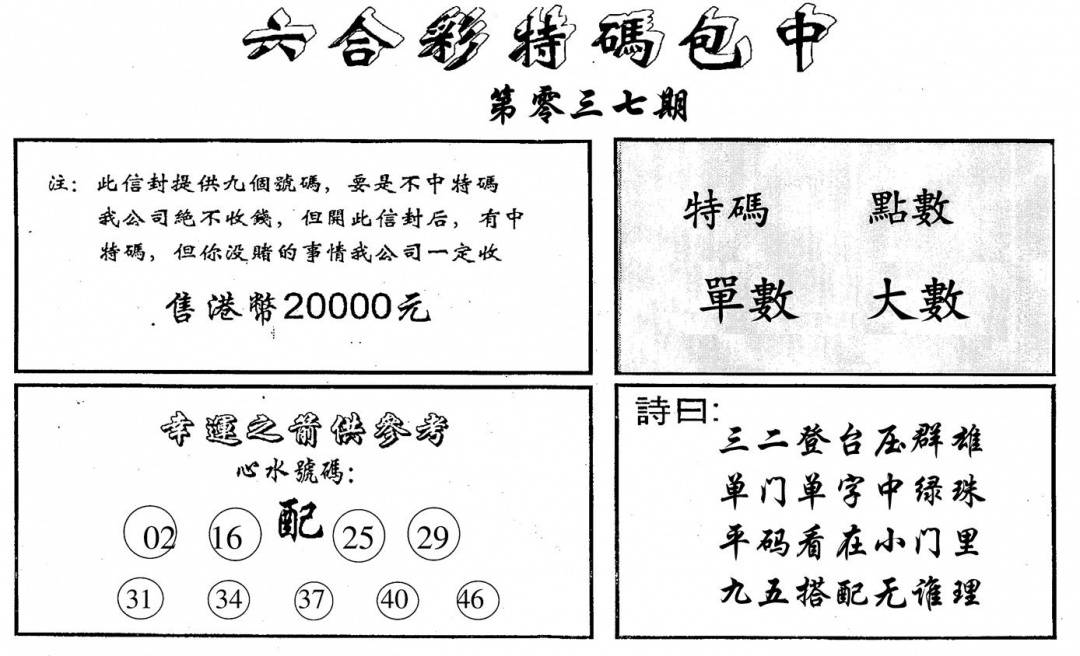 六合彩特碼包中
第零三七期
注：此信封提供九個號碼，要是不中特碼
我公司絕不收錢，但開此信封后，有中
特碼，但你没賭的事情我公司一定收
售港幣20000元
特碼 點數
單數 大數
幸運之箭供參考
心水號碼：
02 16 配 25 29
31 34 37 40 46
詩曰：
三二登台压群雄
单门单字中绿珠
平码看在小门里
九五搭配无谁理